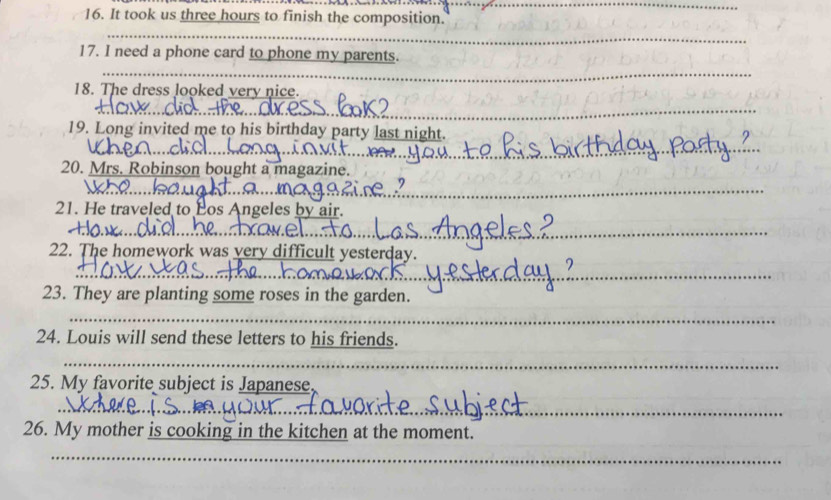 16. It took us three hours to finish the composition.
17. I need a phone card to phone my parents.
18. The dress looked very nice.
How did the dress look?
19. Long invited me to his birthday party last night.
When did Long invit you to his birthday party?
20. Mrs. Robinson bought a magazine.
Who bought a magazine?
21. He traveled to Los Angeles by air.
How did he travel to Los Angeles?
22. The homework was very difficult yesterday.
How was the homework yesterday?
23. They are planting some roses in the garden.
24. Louis will send these letters to his friends.
25. My favorite subject is Japanese.
Where is your favorite subject
26. My mother is cooking in the kitchen at the moment.